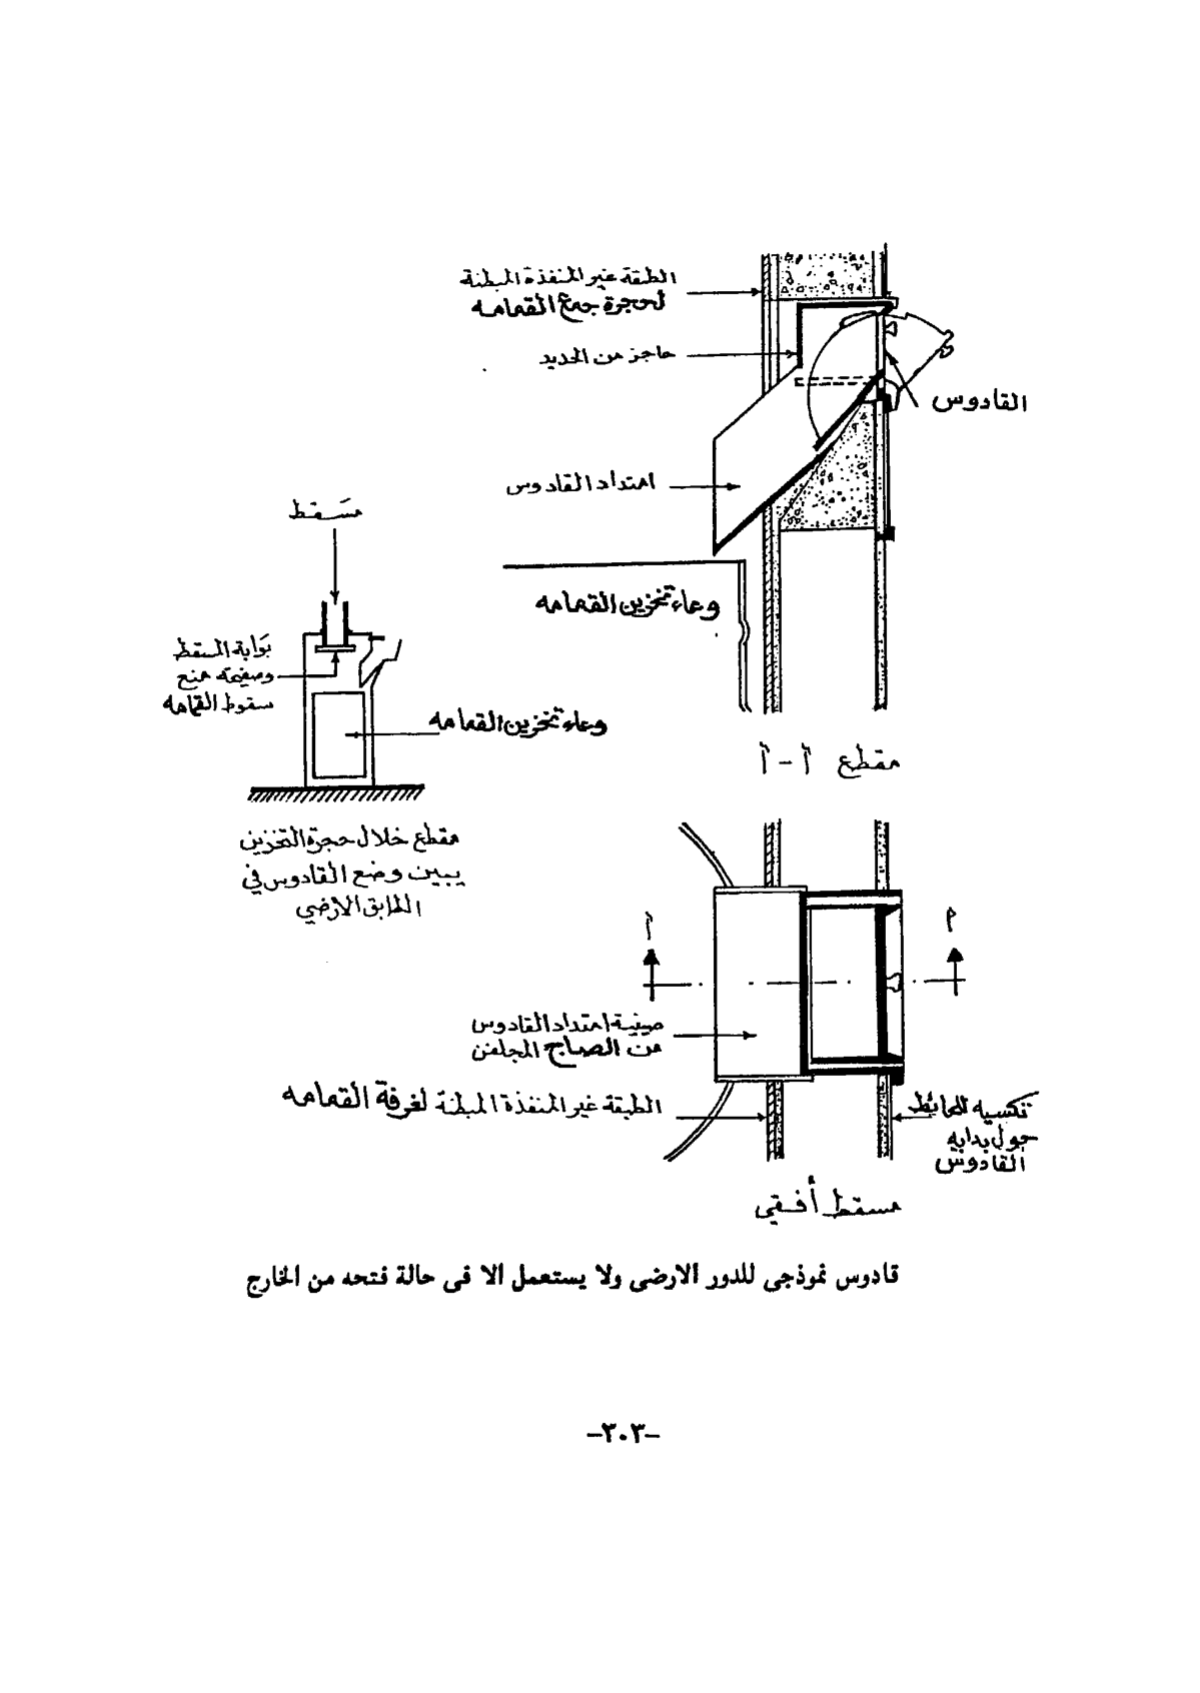 الطبقة غير المنفذة المبطنة
لحجرة جمع القمامه
حاجز من الحديد
القادوس
امتداد القادوس
وعاء تخزين القمامه
مقطع أ - أ
مسَقط
بَوابة المسقط
وصفيحه منع
سقوط القمامه
وعاء تخزين القمامه
مقطع خلال حجرة التخزين
يبين وضع القادوس في
الطابق الارضي
أ
أ
صينية امتداد القادوس
من الصاج المجلفن
الطبقة غير المنفذة المبطنة لغرفة القمامه
تكسيه للحائط
حول بدايه
القادوس
مسقط أفقي
قادوس نموذجى للدور الارضى ولا يستعمل الا فى حالة فتحه من الخارج
-٣٠٣-